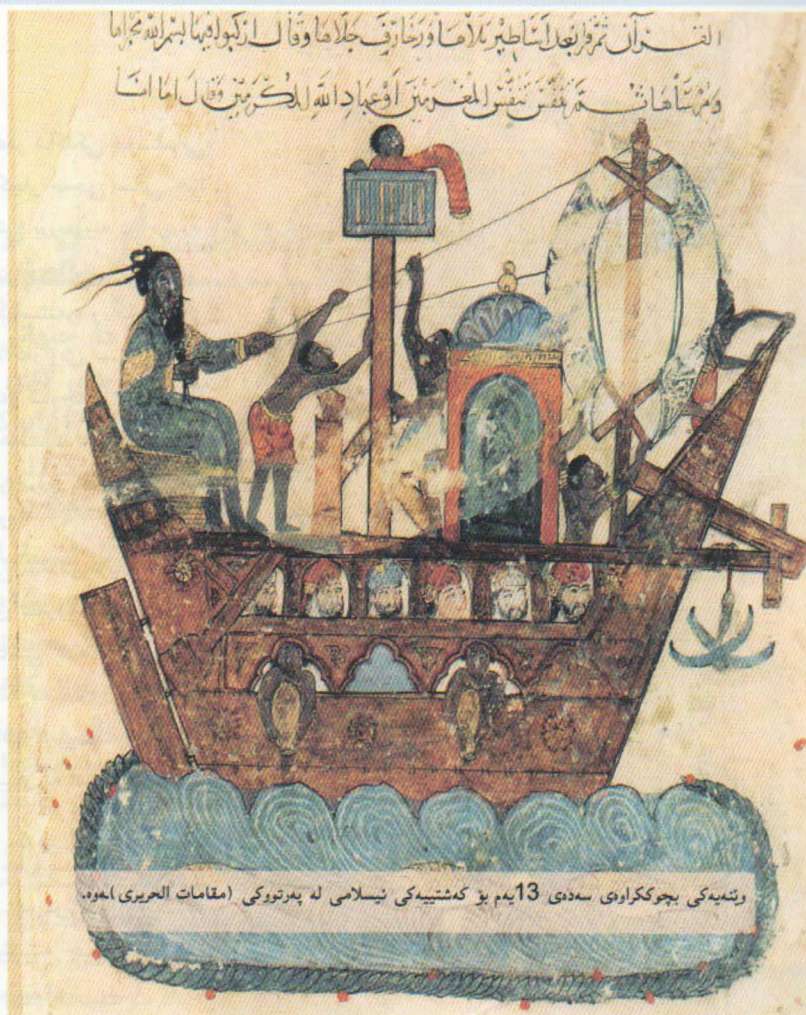 القرآن ثم قرا بعد اساطير تلاها وزخارف جلاها وقال اركبوا فيها بسم الله مجراها
ومرساها ثم تنفس تنفس المغرمين او عباد الله المكرمين وقال اما انا
وێنەیەکی بچوککراوەی سەدەی 13یەم بۆ کەشتییەکی ئیسلامی لە پەرتووکی (مقامات الحریری)ـەوە.